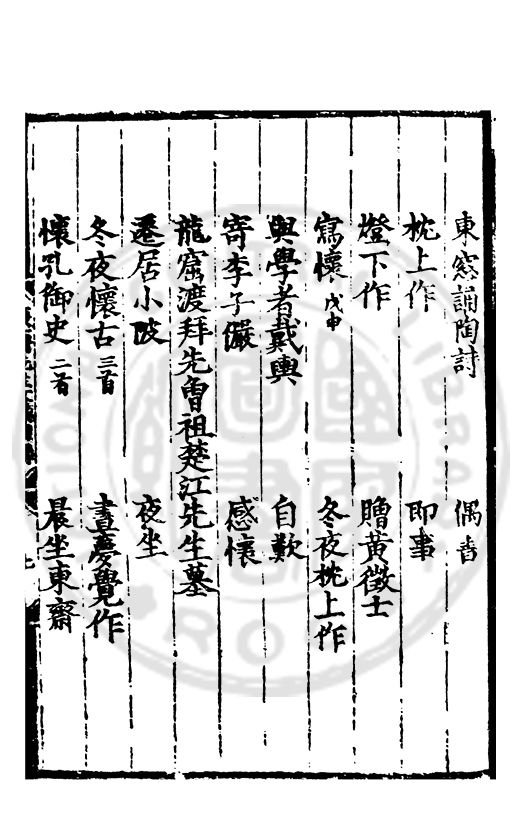 東窓誦陶詩　偶書
枕上作　即事
燈下作　贈黃徵士
寫懷戊申　冬夜枕上作
與學者戴輿　自歎
寄李子儼　感懷
龍窟渡拜先曾祖楚江先生墓
遷居小陂　夜坐
冬夜懷古三首　晝夢覺作
懷孔御史二首　晨坐東齋